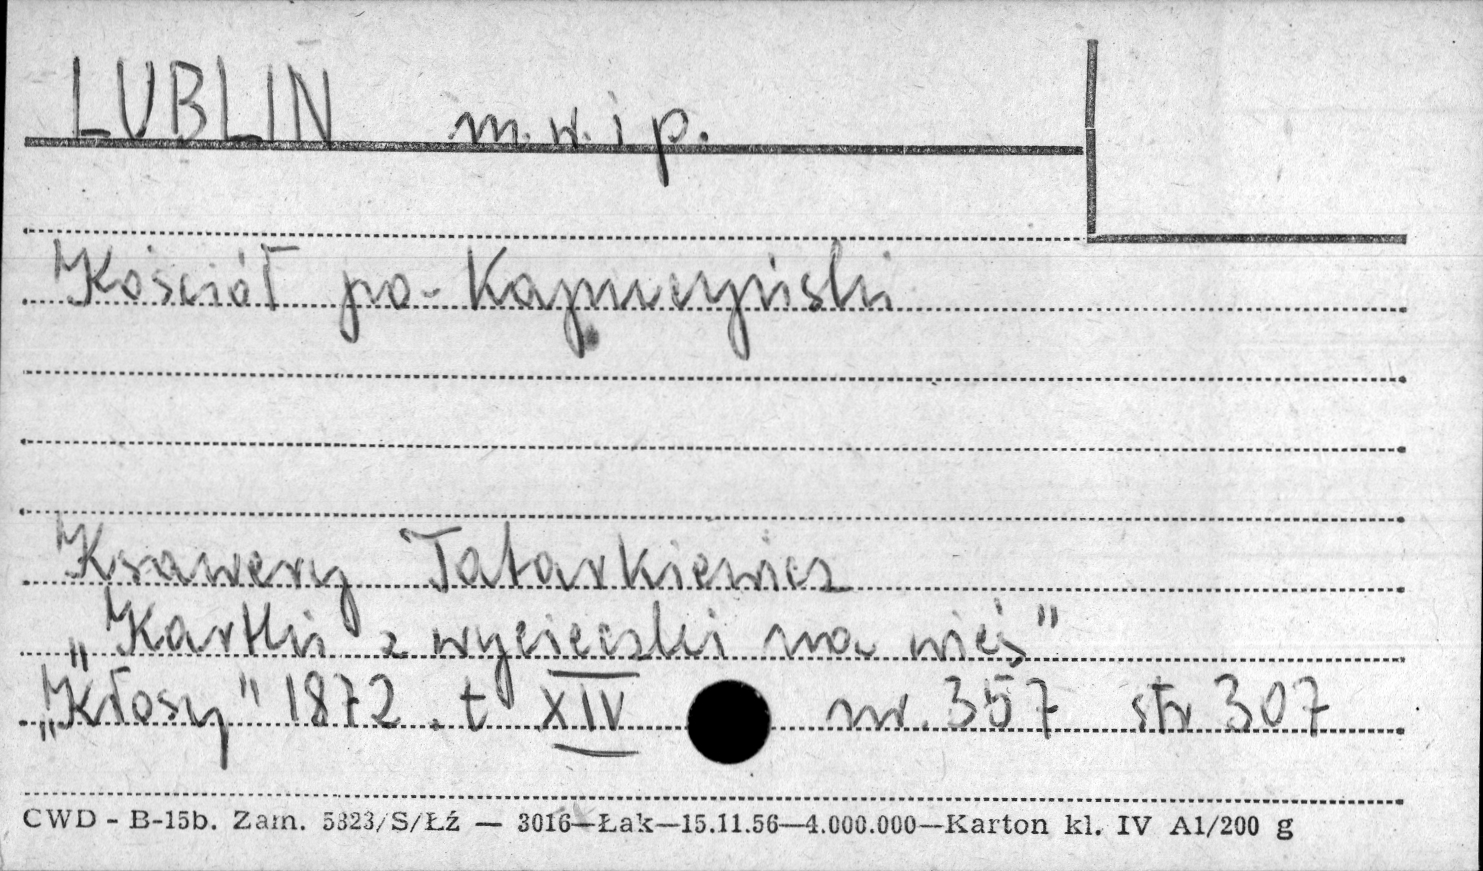 LUBLIN m. w. i p.
Kościół po-Kapucyński
Ksawery Tatarkiewicz
„Kartki z wycieczki na wieś"
„Kłosy" 1872. t XIV nr. 357 str 307
CWD - B-15b. Zam. 5323/S/Łź — 3016—Łak—15.11.56—4.000.000—Karton kl. IV A1/200 g